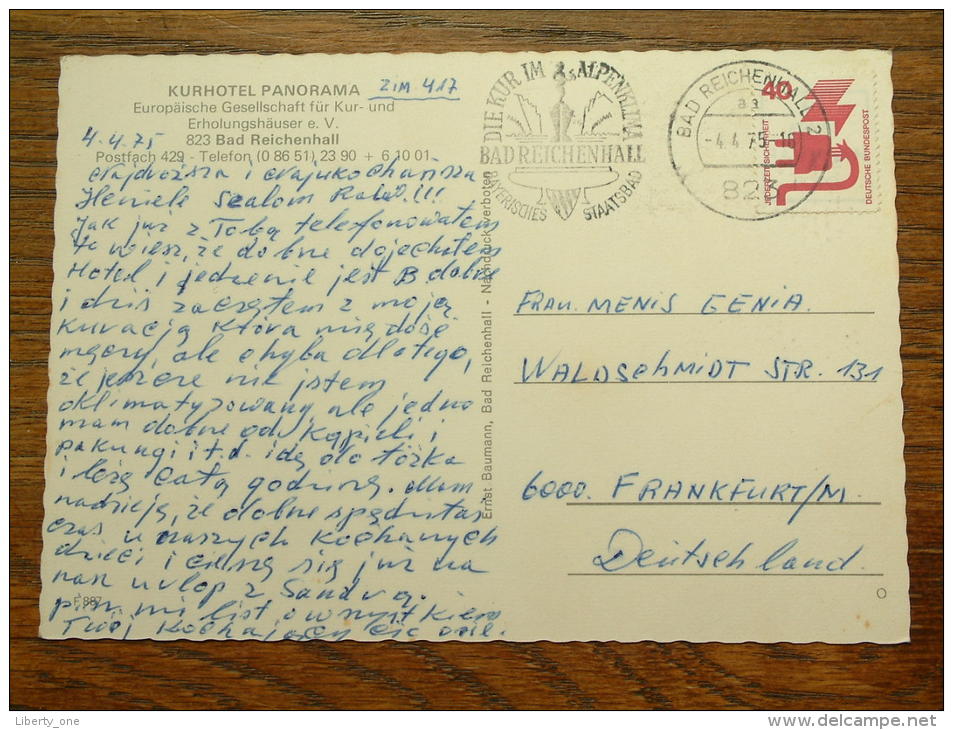 KURHOTEL PANORAMA
ZIM 417
Europäische Gesellschaft für Kur- und
Erholungshäuser e. V.
4.4.75
823 Bad Reichenhall
Postfach 429 - Telefon (0 86 51) 23 90 + 6 10 01
i
szalom !!!
Jak już z Tobą telefonowałem
to wiesz, że dobrze dojechałem
Hotel i jedzenie jest B. dobre
i dziś zacząłem z moją
Kuracją która mię dość
męczy, ale chyba dlatego,
że jeszcze nie jstem
oklimatyzowany ale jedno
mam dobre od Kąpieli i
pakungi i t.d. idę do łóżka
i leżę całą godzinę. Mam
nadzieję, że dobrze spędziłaś
czas u naszych Kochanych
dzieci i cieszę się już na
nasz urlop z Sandrą.
pisz mi list o wszystkiem
Twój Kochający Cię
F 887
DIE KUR IM ALPENKLIMA
BAD REICHENHALL
BAYERISCHES STAATSBAD
BAD REICHENHALL 2
aa
-4.4.75-16
823
40
JEDERZEIT SICHERHEIT
DEUTSCHE BUNDESPOST
Ernst Baumann, Bad Reichenhall - Nachdruck verboten
FRAU. MENIS GENIA.
WALDSchMIDT STR. 131
6000. FRANKFURT/M.
Deutschland.
Liberty_one